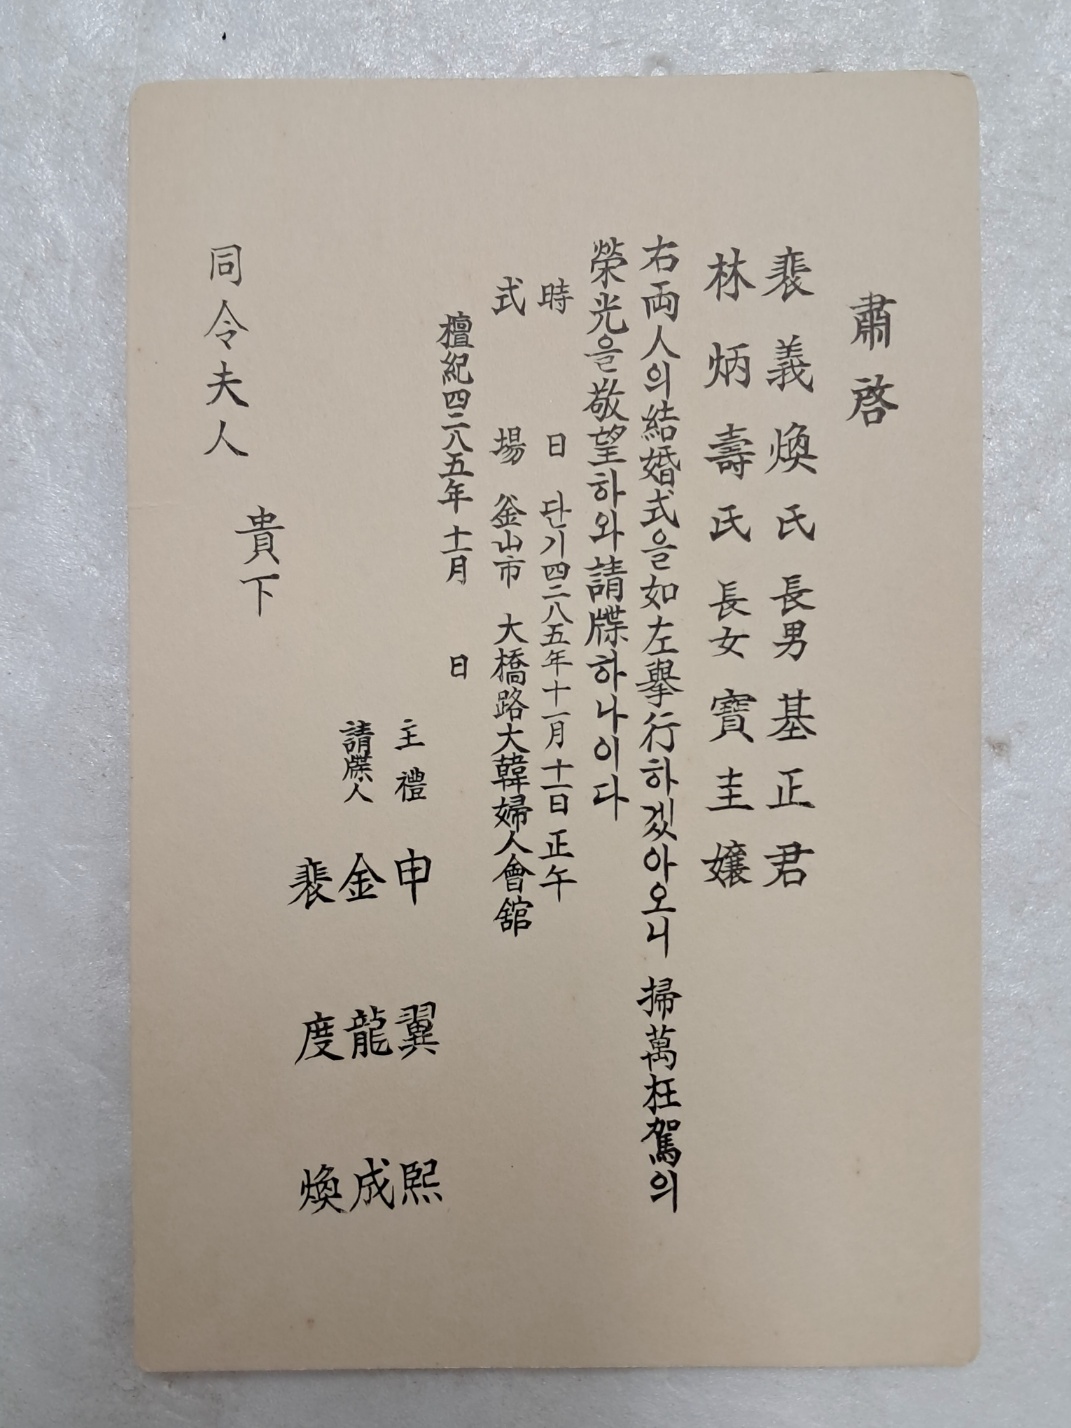 肅啓
裵義煥氏 長男 基正君
林炳壽氏 長女 寶圭孃
右両人의結婚式을如左擧行하겠아오니 掃萬枉駕의
榮光을敬望하와請牒하나이다
時日 단기四二八五年十一月十二日正午
式場 釜山市 大橋路大韓婦人會舘
檀紀四二八五年 十一月 日
主禮 申翼熙
請牒人 金龍成
裵度煥
貴下
同令夫人